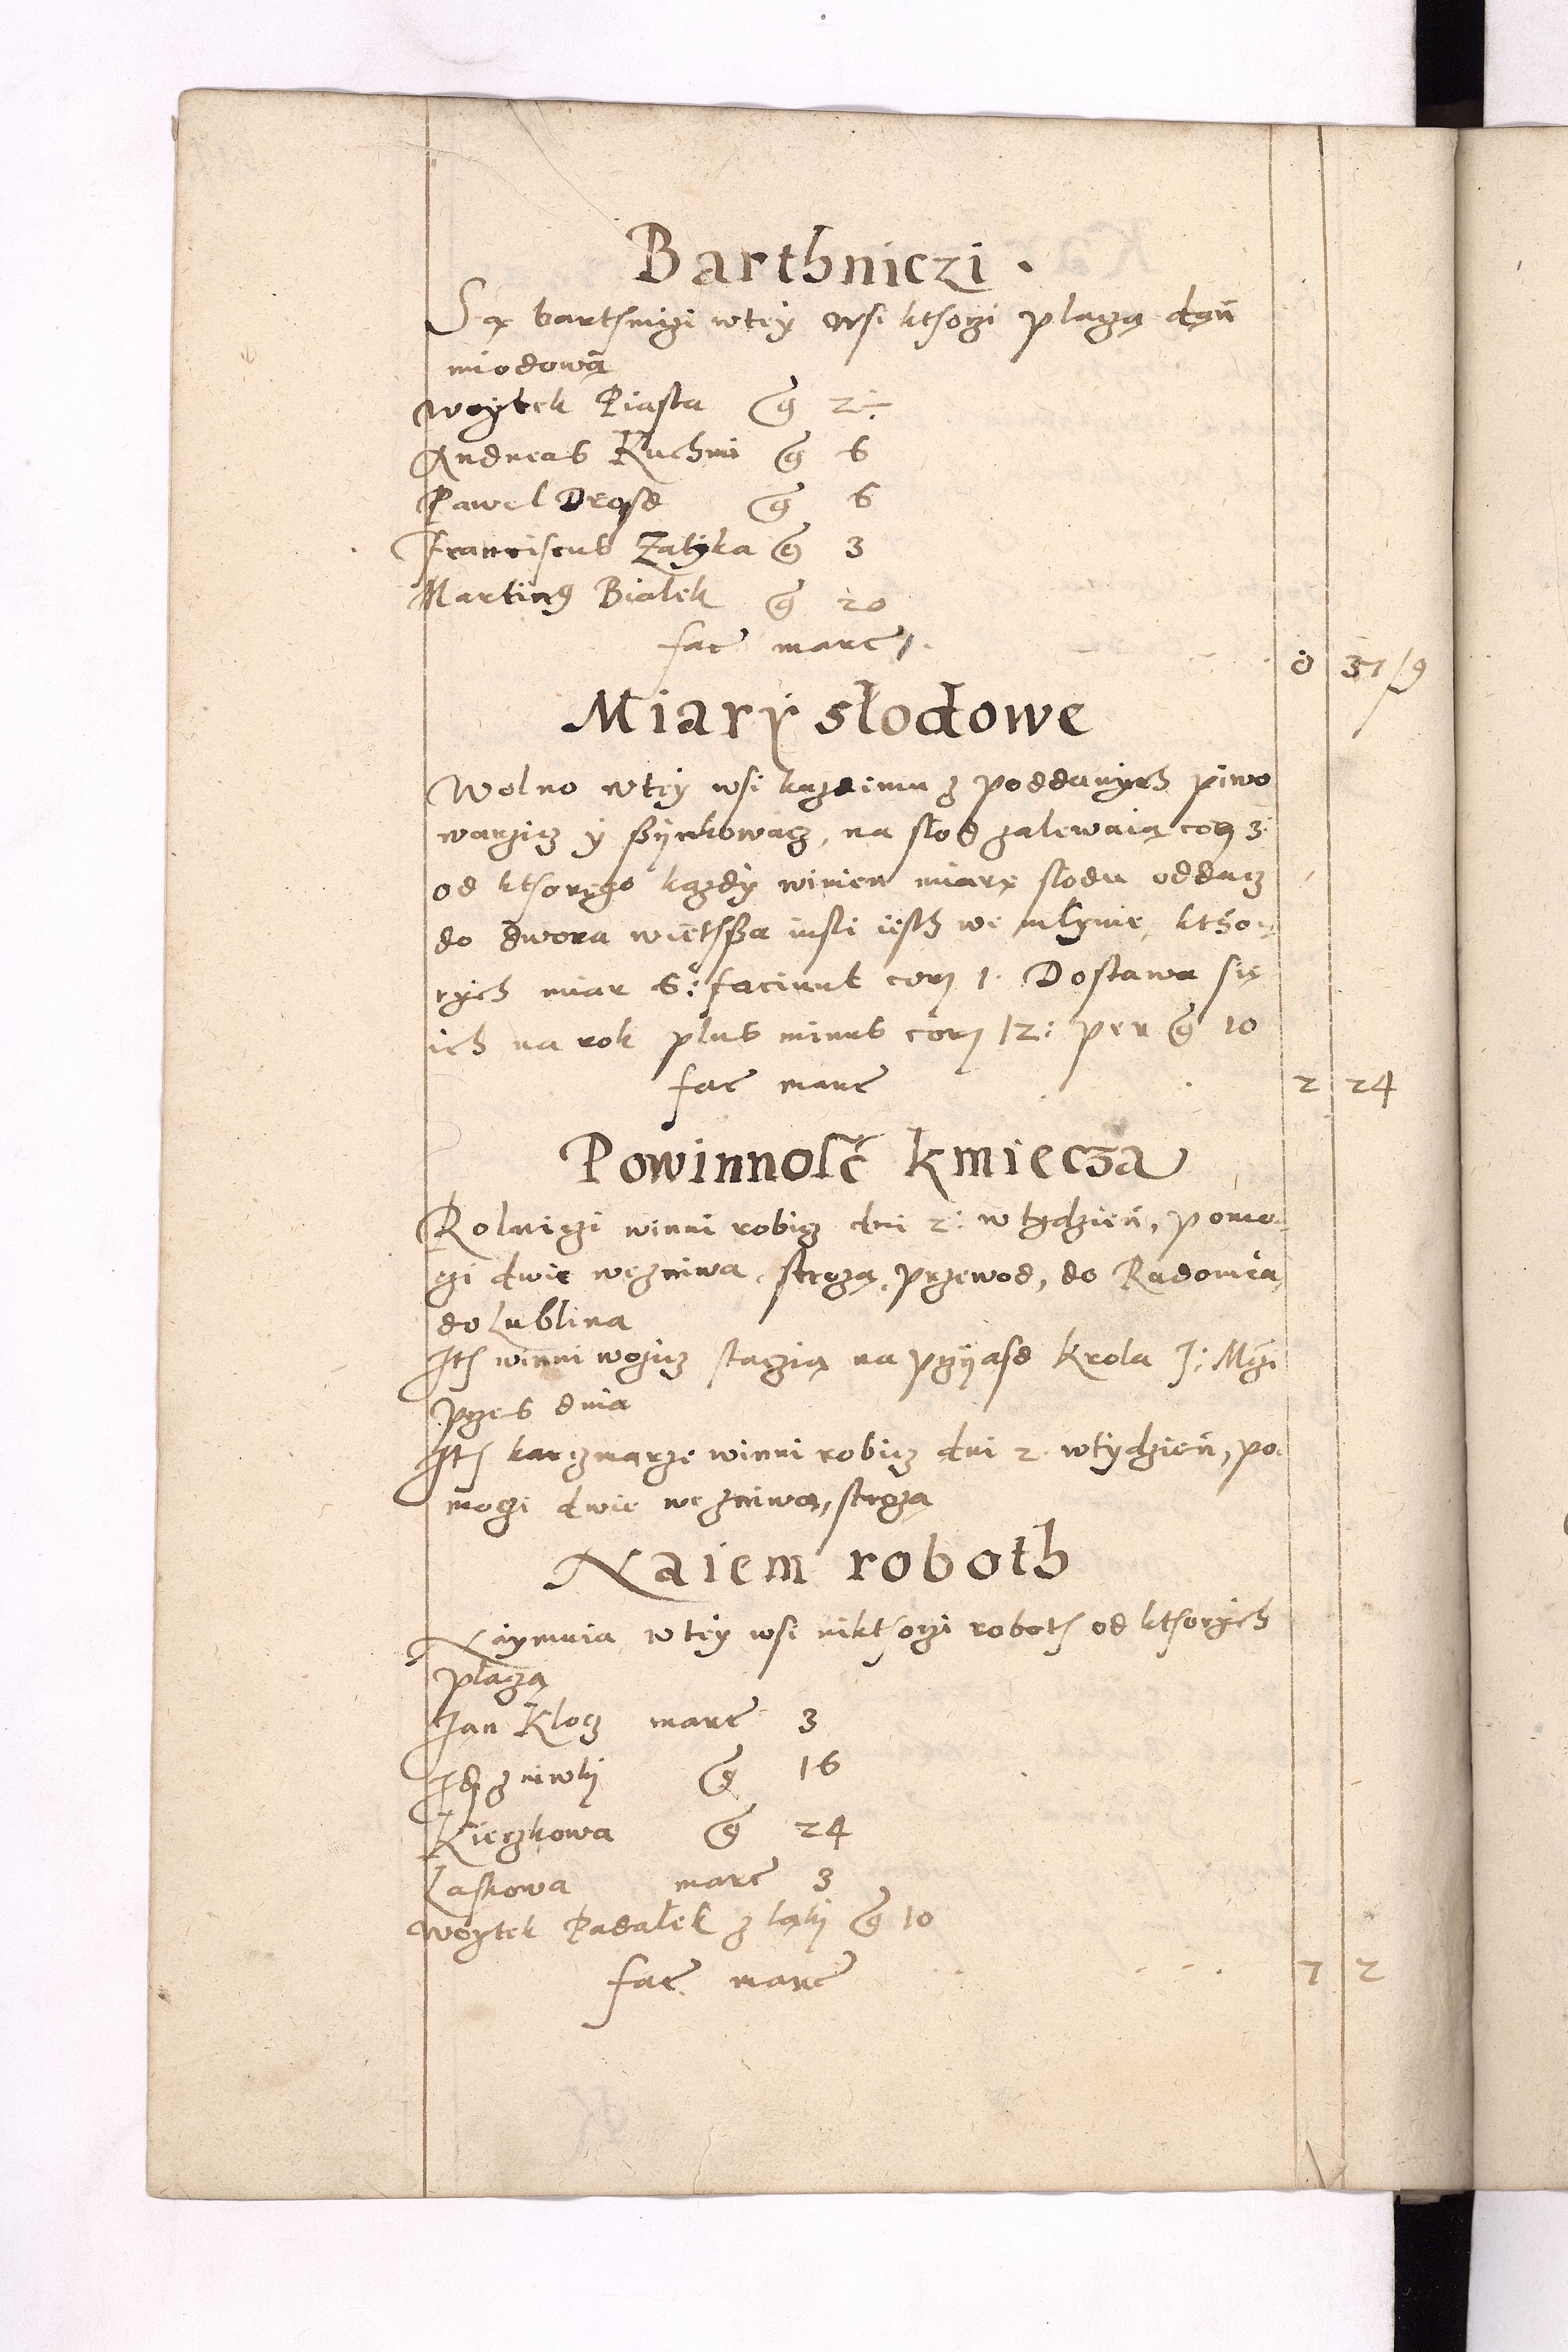 Barthniczi.
Są barthniczi wtey wsi kthorzi placzą dań
miodową
Woytek Piasta g 2÷
Andreas Kuchni g 6
Pawel Drosd g 6
Franciscus Zatyka g 3
Marting Bialek g 20
fac marc 0 37 ꟊ
Miary słodowe
Wolno wtey wsi kazdemu z poddanych piwo
warzicz y szynkowacz, na słod zalewaią cor 3
od kthorego kazdy winien miarę słodu oddacz
do dwora wiethsza insli iesth we młynie, ktho-
rych miar 6: faciunt cor 1. Dostawa się
ich na rok plus minus cor 12: per g 10
fac marc 2 24
Powinnosć kmiecza
Rolniczi winni robicz dni 2: w tydzień, pomo-
czi dwie wezniwa, strożą, przewod, do Radomia,
do Lublina
Ith winni wozicz staczią na przyasd Krola J: Mczi
przes dnia
Ith karczmarze winni robicz dni 2. wtydzień, po-
moczi dwie wezniwa, stroża
Naiem roboth
Naymuia wtey wsi nikthorzi roboth od kthorych
placzą
Jan Klocz marc 3
z niwky g 16
Kieczkowa g 24
Laskowa marc 3
Woytek Padałek z łąky g 10
fac marc 7 2